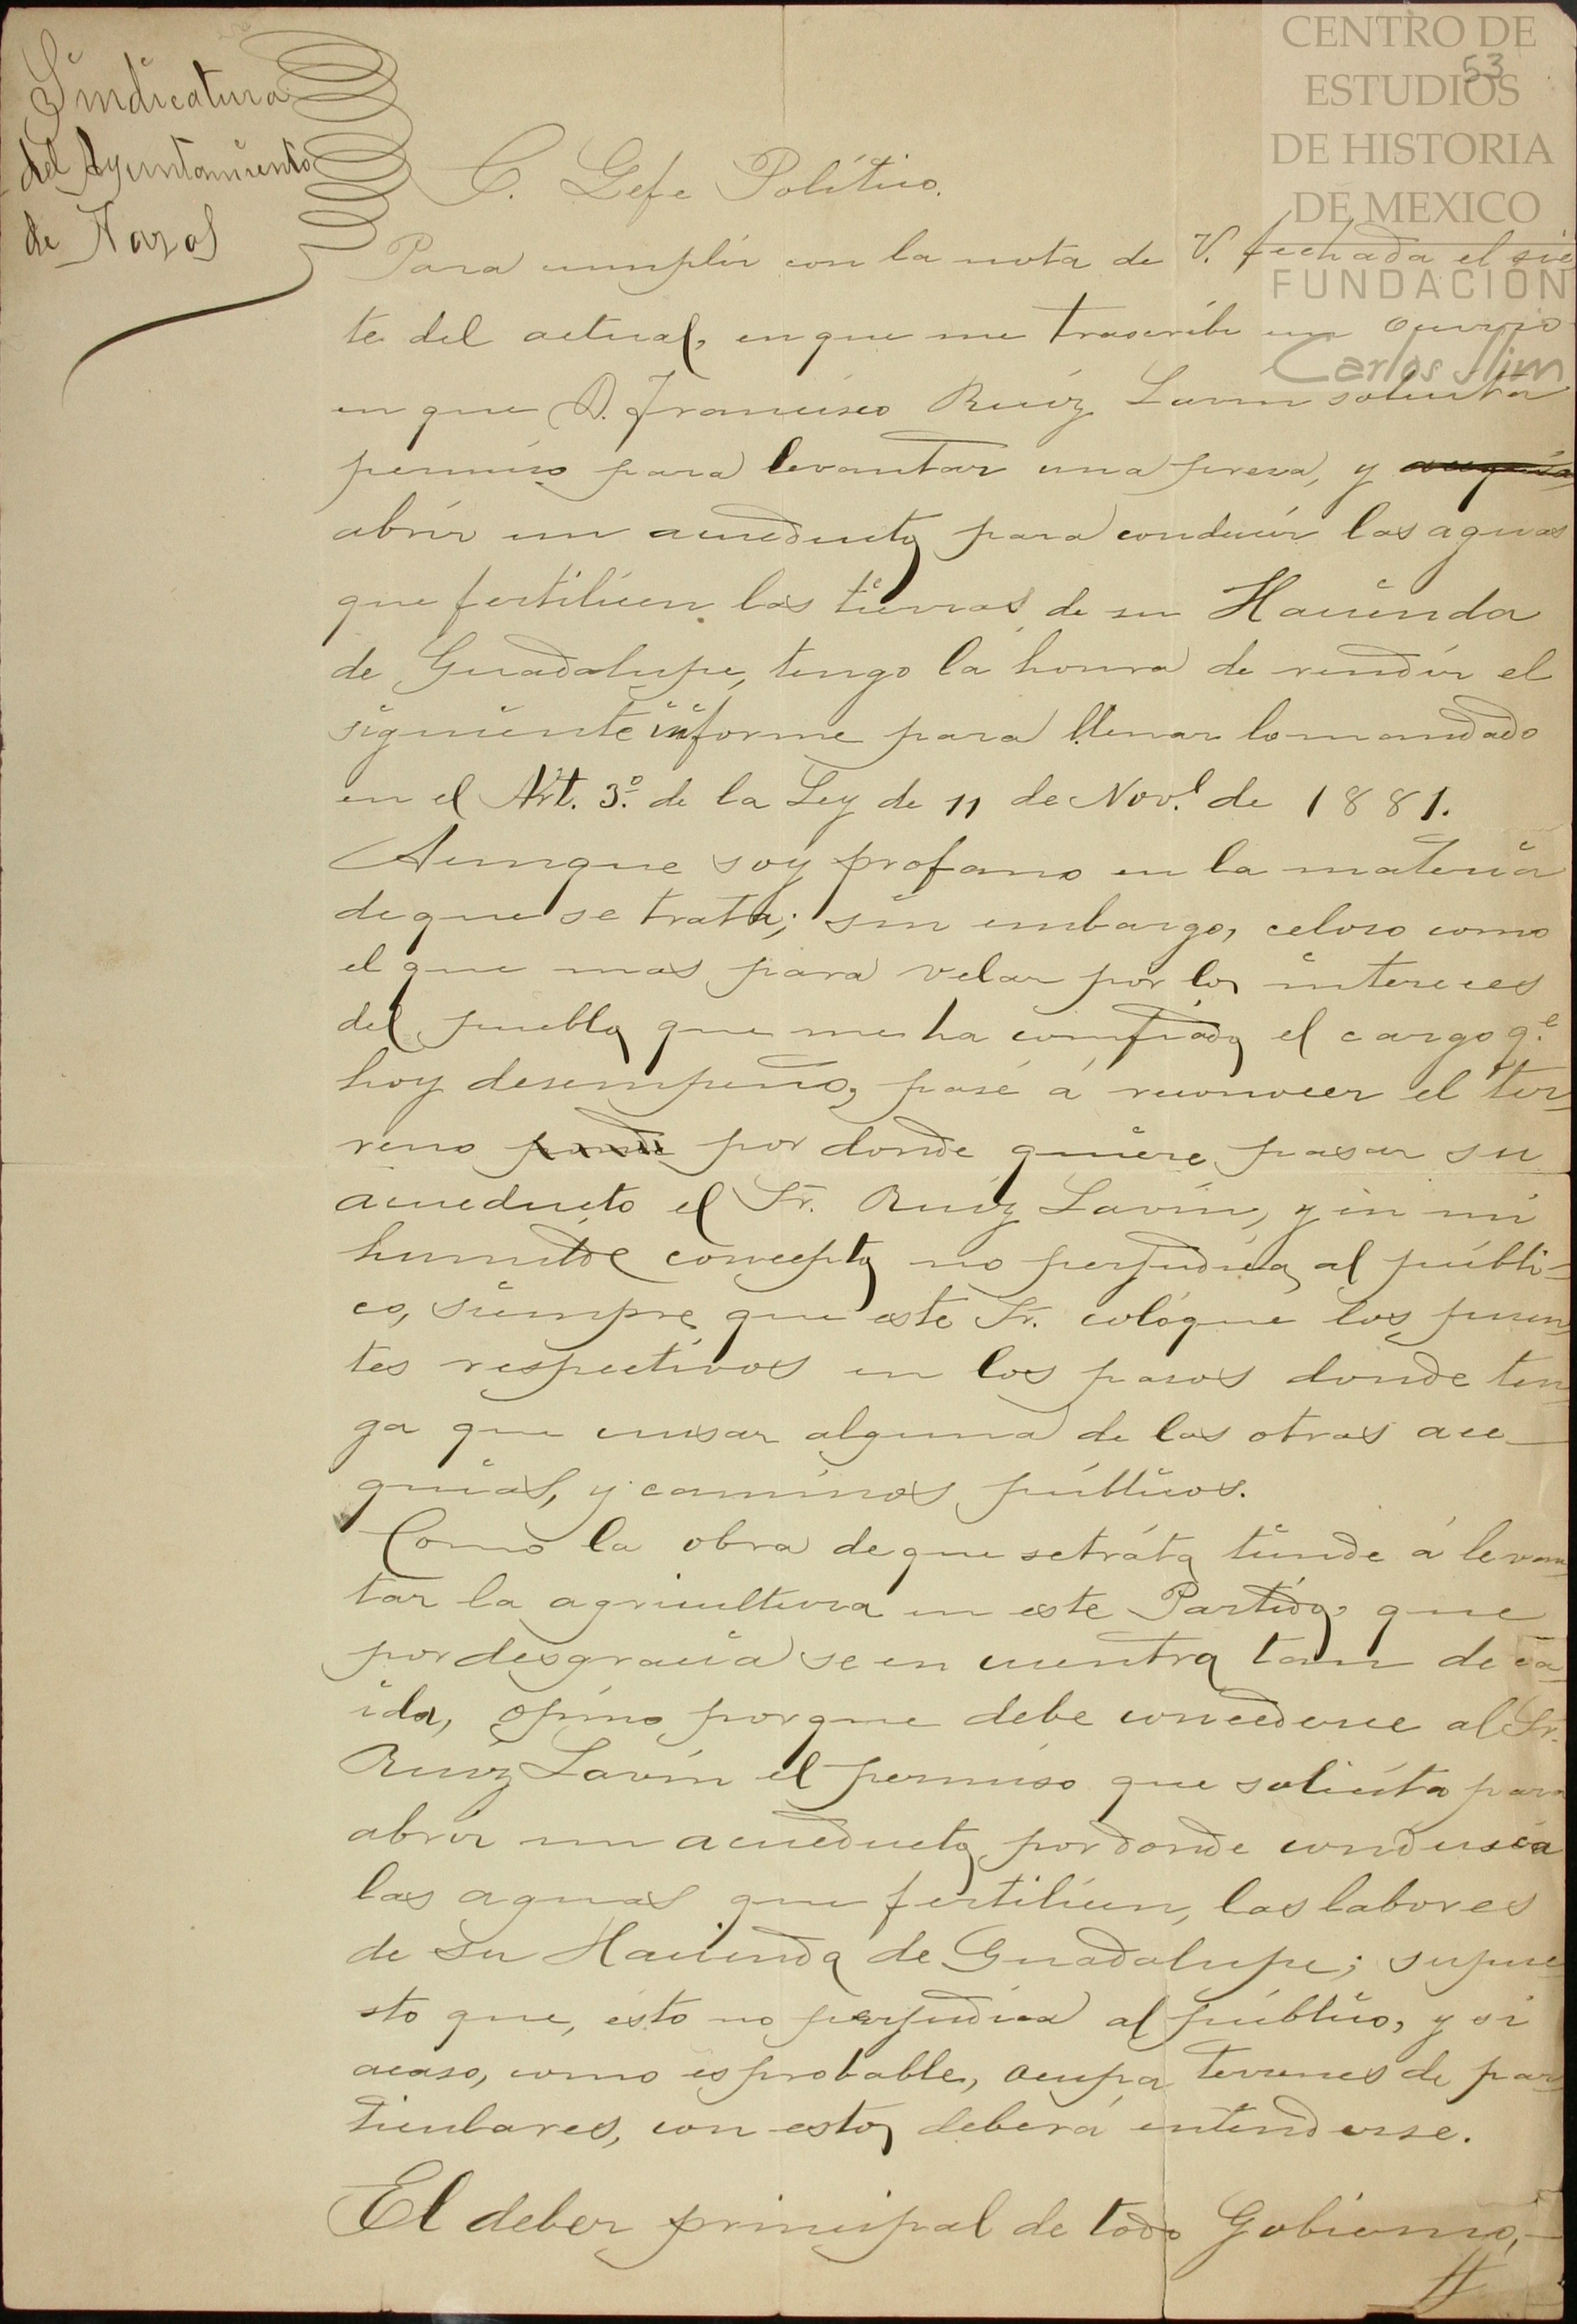 CENTRO DE
ESTUDIOS
DE HISTORIA
DE MEXICO
FUNDACIÓN
Carlos Slim
53
Sindicatura
del Ayuntamiento
de Nazas
C. Gefe Político.
Para cumplir con la nota de V. fechada el sie
te del actual, en que me trascribe un ocurso
en que D. Francisco Ruíz Lavin solicita
permiso para levantar una presa, y
abrir un acueducto para conducir las aguas
que fertilicen las tierras de su Hacienda
de Guadalupe, tengo la honra de rendir el
siguiente informe para llenar lo mandado
en el Art. 3º. de la Ley de 11 de Nov.l de 1881.
Aunque soy profano en la materia
de que se trata; sin embargo, celoso como
el que mas para velar por los intereces
del pueblo que me ha confiado el cargo q.e
hoy desempeño, pasé á reconocer el ter
reno por donde quiere pasar su
acueducto el Sr. Ruíz Lavín, y en mi
humilde concepto no perjudica al públi-
co, siempre que este Sr. colóque los puen
tes respectivos en los pasos donde ten
ga que crusar alguna de las otras ace
quias, y caminos públicos.
Como la obra de que se tráta tiende á levan
tar la agricultura en este Partido, que
por desgracia se en cuentra tan deca
ida, opino porque debe concederce al Sr.
Ruíz Lavín el permiso que solicita para
abrir un acueducto por donde condusca
las aguas que fertilicen, las labores
de su Hacienda de Guadalupe; supue
sto que, ésto no perjudica al público, y si
acaso, como es probable, ocupa terrenes de par
ticulares, con estos deberá entenderse.
El deber principal de todo Gobierno,